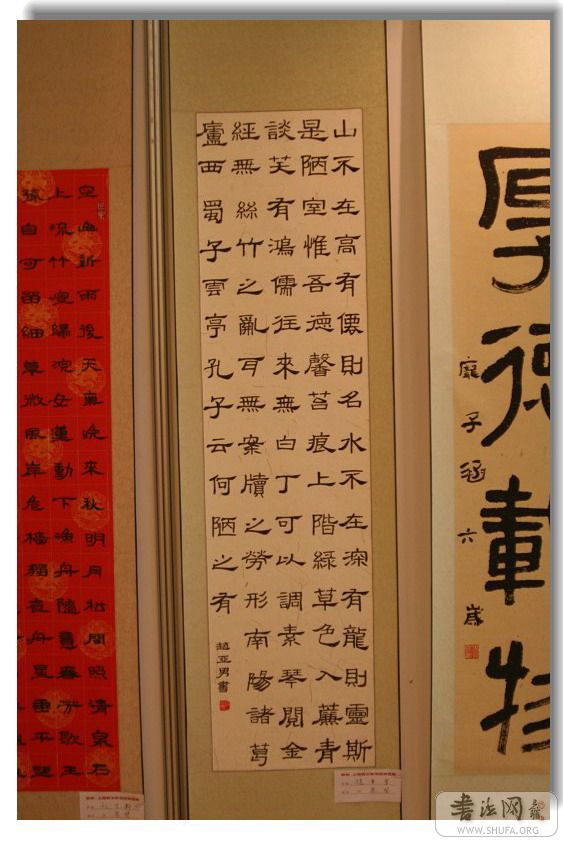 厚德載物
龐子涵六歲
山不在高有僊則名水不在深有龍則靈斯
是陋室惟吾德馨苔痕上階綠草色入簾青
談笑有鴻儒往來無白丁可以調素琴閱金
經無絲竹之亂耳無案牘之勞形南陽諸葛
廬西蜀子雲亭孔子云何陋之有
趙亚男書
空山新雨後天氣晚來秋明月松間照清泉石
上流竹喧歸浣女蓮動下漁舟隨意春芳歇王
孫自可留細草微風岸危檣獨夜舟星垂平野
書法网
WWW.SHUFA.ORG